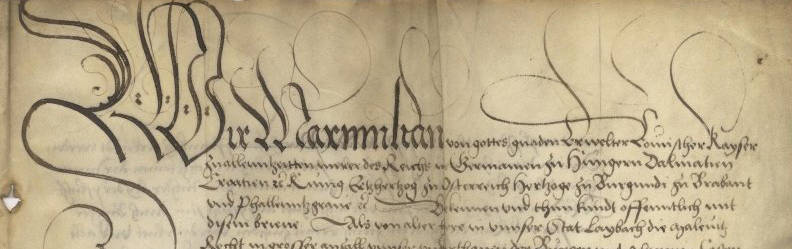 Wir Maximilian von gottes gnaden Erwelter Römischer Kayser
zu allenntzeitten merer des Reichs in Germanien zu Hungern Dalmatien
Croatien &c Kunig Ertzhertzog zu Osterreich Hertzoge zu Burgundi zu Brabant
vnd Phallenntzgraue &c Bekennen vnd thun kundt offenntlich mit
disem brieue Als von alter her in vnnser Stat Laybach die
Recht in grosser